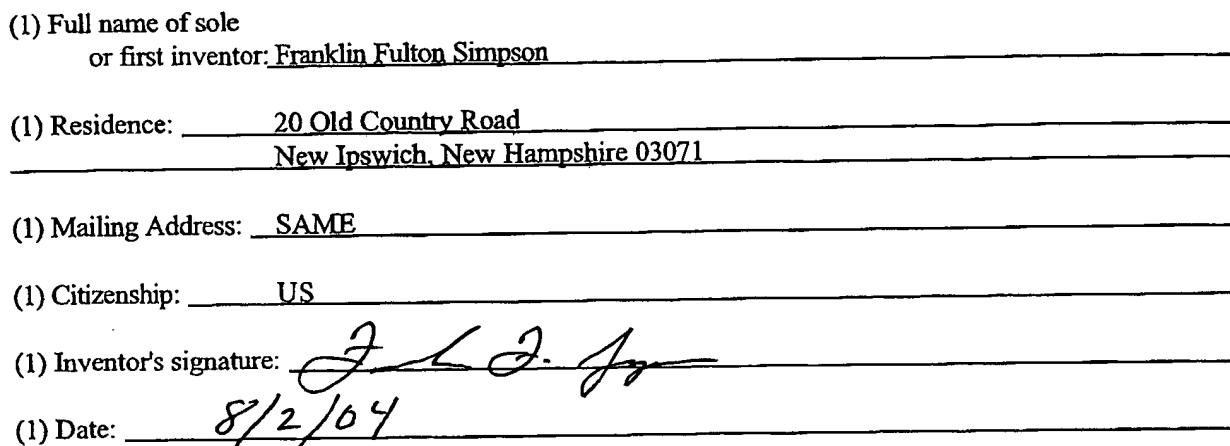 (1) Full name of sole
or first inventor: Franklin Fulton Simpson
(1) Residence: 20 Old Country Road
New Ipswich, New Hampshire 03071
(1) Mailing Address: SAME
(1) Citizenship: US
(1) Inventor's signature:
(1) Date: 8/2/04